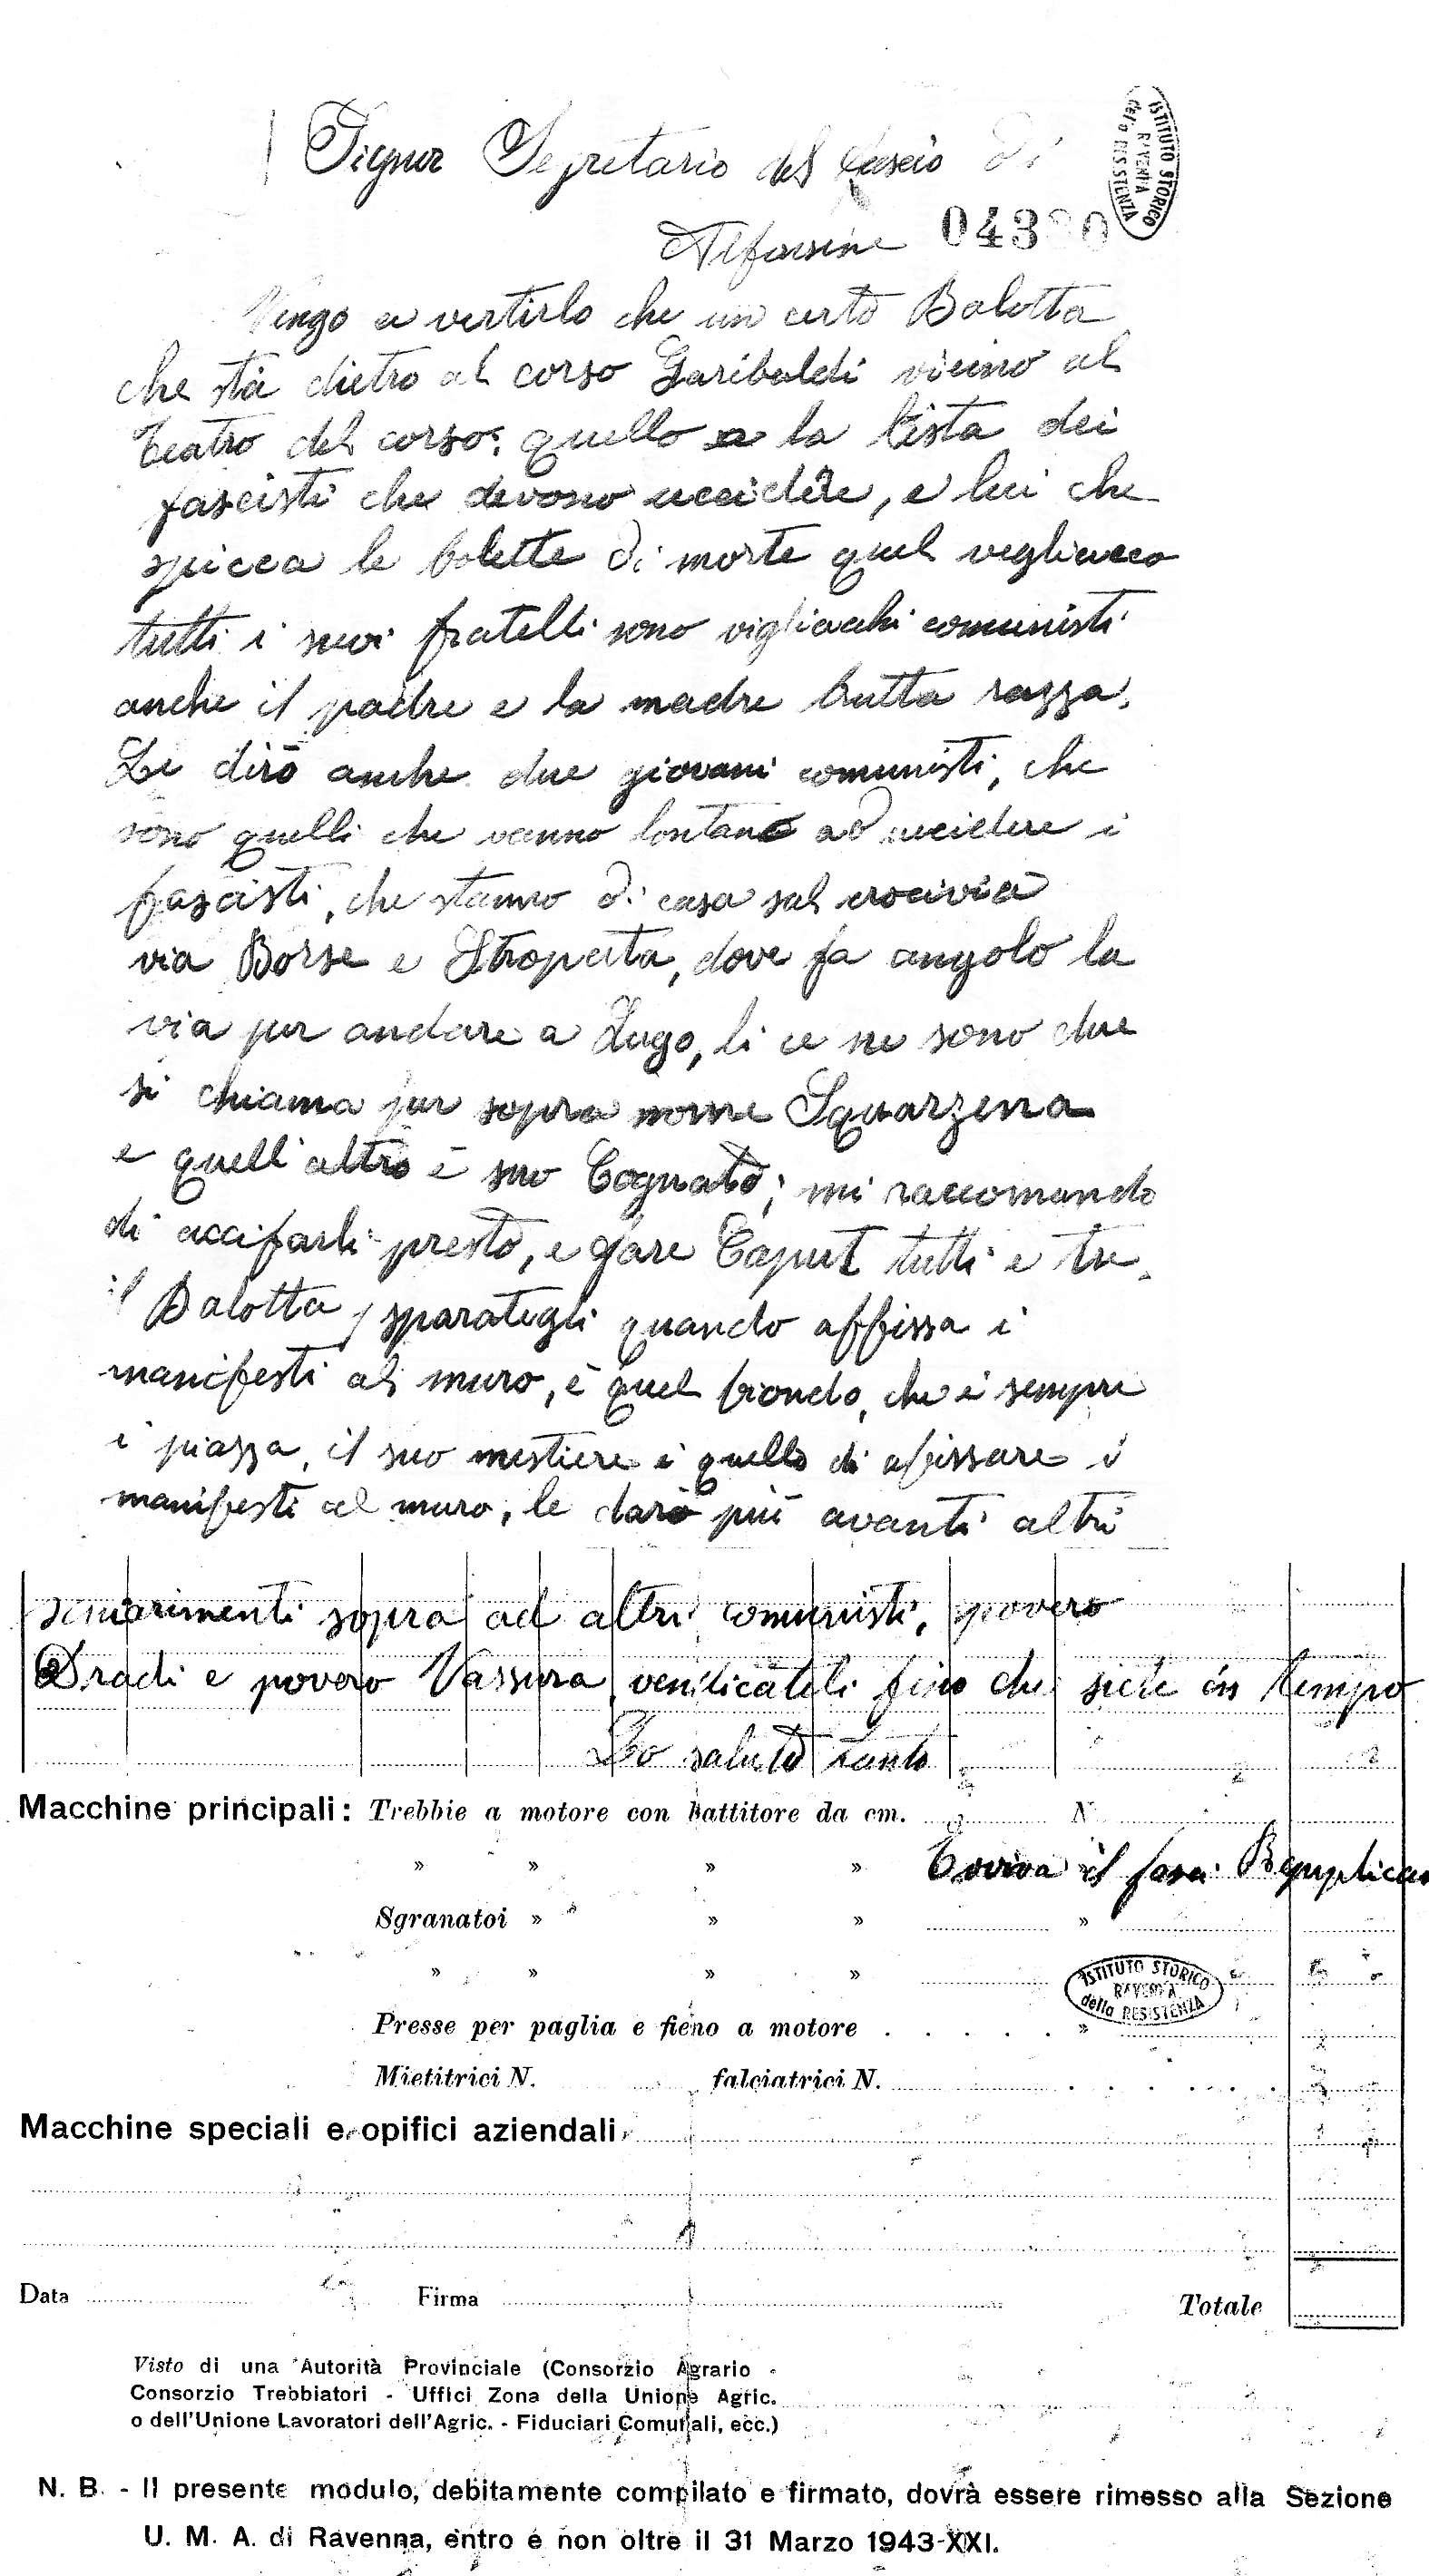 Signor Segretario del Fascio di
ISTITUTO STORICO
RAVENNA
della RESISTENZA
Alfonsine 04380
Vengo a vertirlo che un certo Balotta
che sta dietro al corso Garibaldi vicino al
teatro del corso; quello a la lista dei
fascisti che devono uccidere, e lui che
spicca le bolette di morte quel vegliacco
tutti i suoi fratelli sono vigliacchi comunisti
anche il padre e la madre brutta razza.
Le dirò anche due giovani comunisti, che
sono quelli che vanno lontano ad uccidere i
fascisti, che stanno di casa sul crocivia
via Borse e Stropata, dove fa angolo la
via per andare a Lugo, li ce ne sono due
si chiama per sopra nome Squarzena
e quell'altro è suo Cognato; mi raccomando
di accifarli presto, e fare Caput tutti e tre.
il Balotta, sparategli quando affissa i
manifesti al muro, è quel biondo, che è sempre
i piazza, il suo mestiere è quello di afissare i
manifesti al muro, le darò più avanti altri
sciarimenti sopra ad altri comunisti, povero
Dradi e povero Vassura, vendicateli fino che siete in tempo
Lo saluto tanto
Macchine principali: Trebbie a motore con battitore da cm. N.
» » » » Evviva il fasci Repuplicano
Sgranatoi » » » »
» » » »
ISTITUTO STORICO
RAVENNA
della RESISTENZA
Presse per paglia e fieno a motore . . . . . »
Mietitrici N. falciatrici N. . . . . .
Macchine speciali e opifici aziendali
Data Firma Totale
Visto di una Autorità Provinciale (Consorzio Agrario -
Consorzio Trebbiatori - Uffici Zona della Unione Agric.
o dell'Unione Lavoratori dell'Agric. - Fiduciari Comunali, ecc.)
N. B. - Il presente modulo, debitamente compilato e firmato, dovrà essere rimesso alla Sezione
U. M. A. di Ravenna, entro e non oltre il 31 Marzo 1943-XXI.